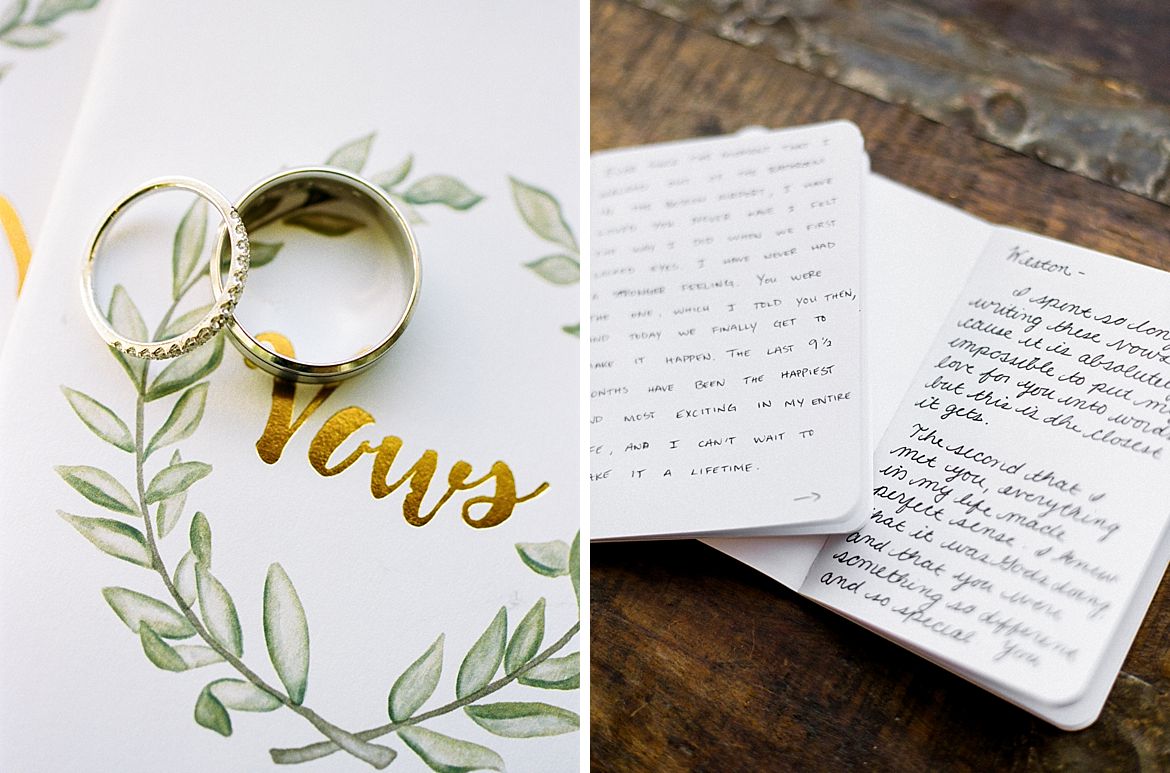 Vows
EVER SINCE THE MOMENT THAT I
WALKED OUT OF THE BATHROOM
IN THE BOSTON MARKET, I HAVE
LOVED YOU. NEVER HAVE I FELT
THE WAY I DID WHEN WE FIRST
LOCKED EYES. I HAVE NEVER HAD
A STRONGER FEELING. YOU WERE
THE ONE, WHICH I TOLD YOU THEN,
AND TODAY WE FINALLY GET TO
MAKE IT HAPPEN. THE LAST 9 ½
MONTHS HAVE BEEN THE HAPPIEST
AND MOST EXCITING IN MY ENTIRE
LIFE, AND I CAN'T WAIT TO
MAKE IT A LIFETIME.
→
Weston -
I spent so long
writing these vows
cause it is absolutel
impossible to put my
love for you into words
but this is the closest
it gets.
The second that I
met you, everything
in my life made
perfect sense. I knew
that it was Gods doing
and that you were
something so different
and so special You